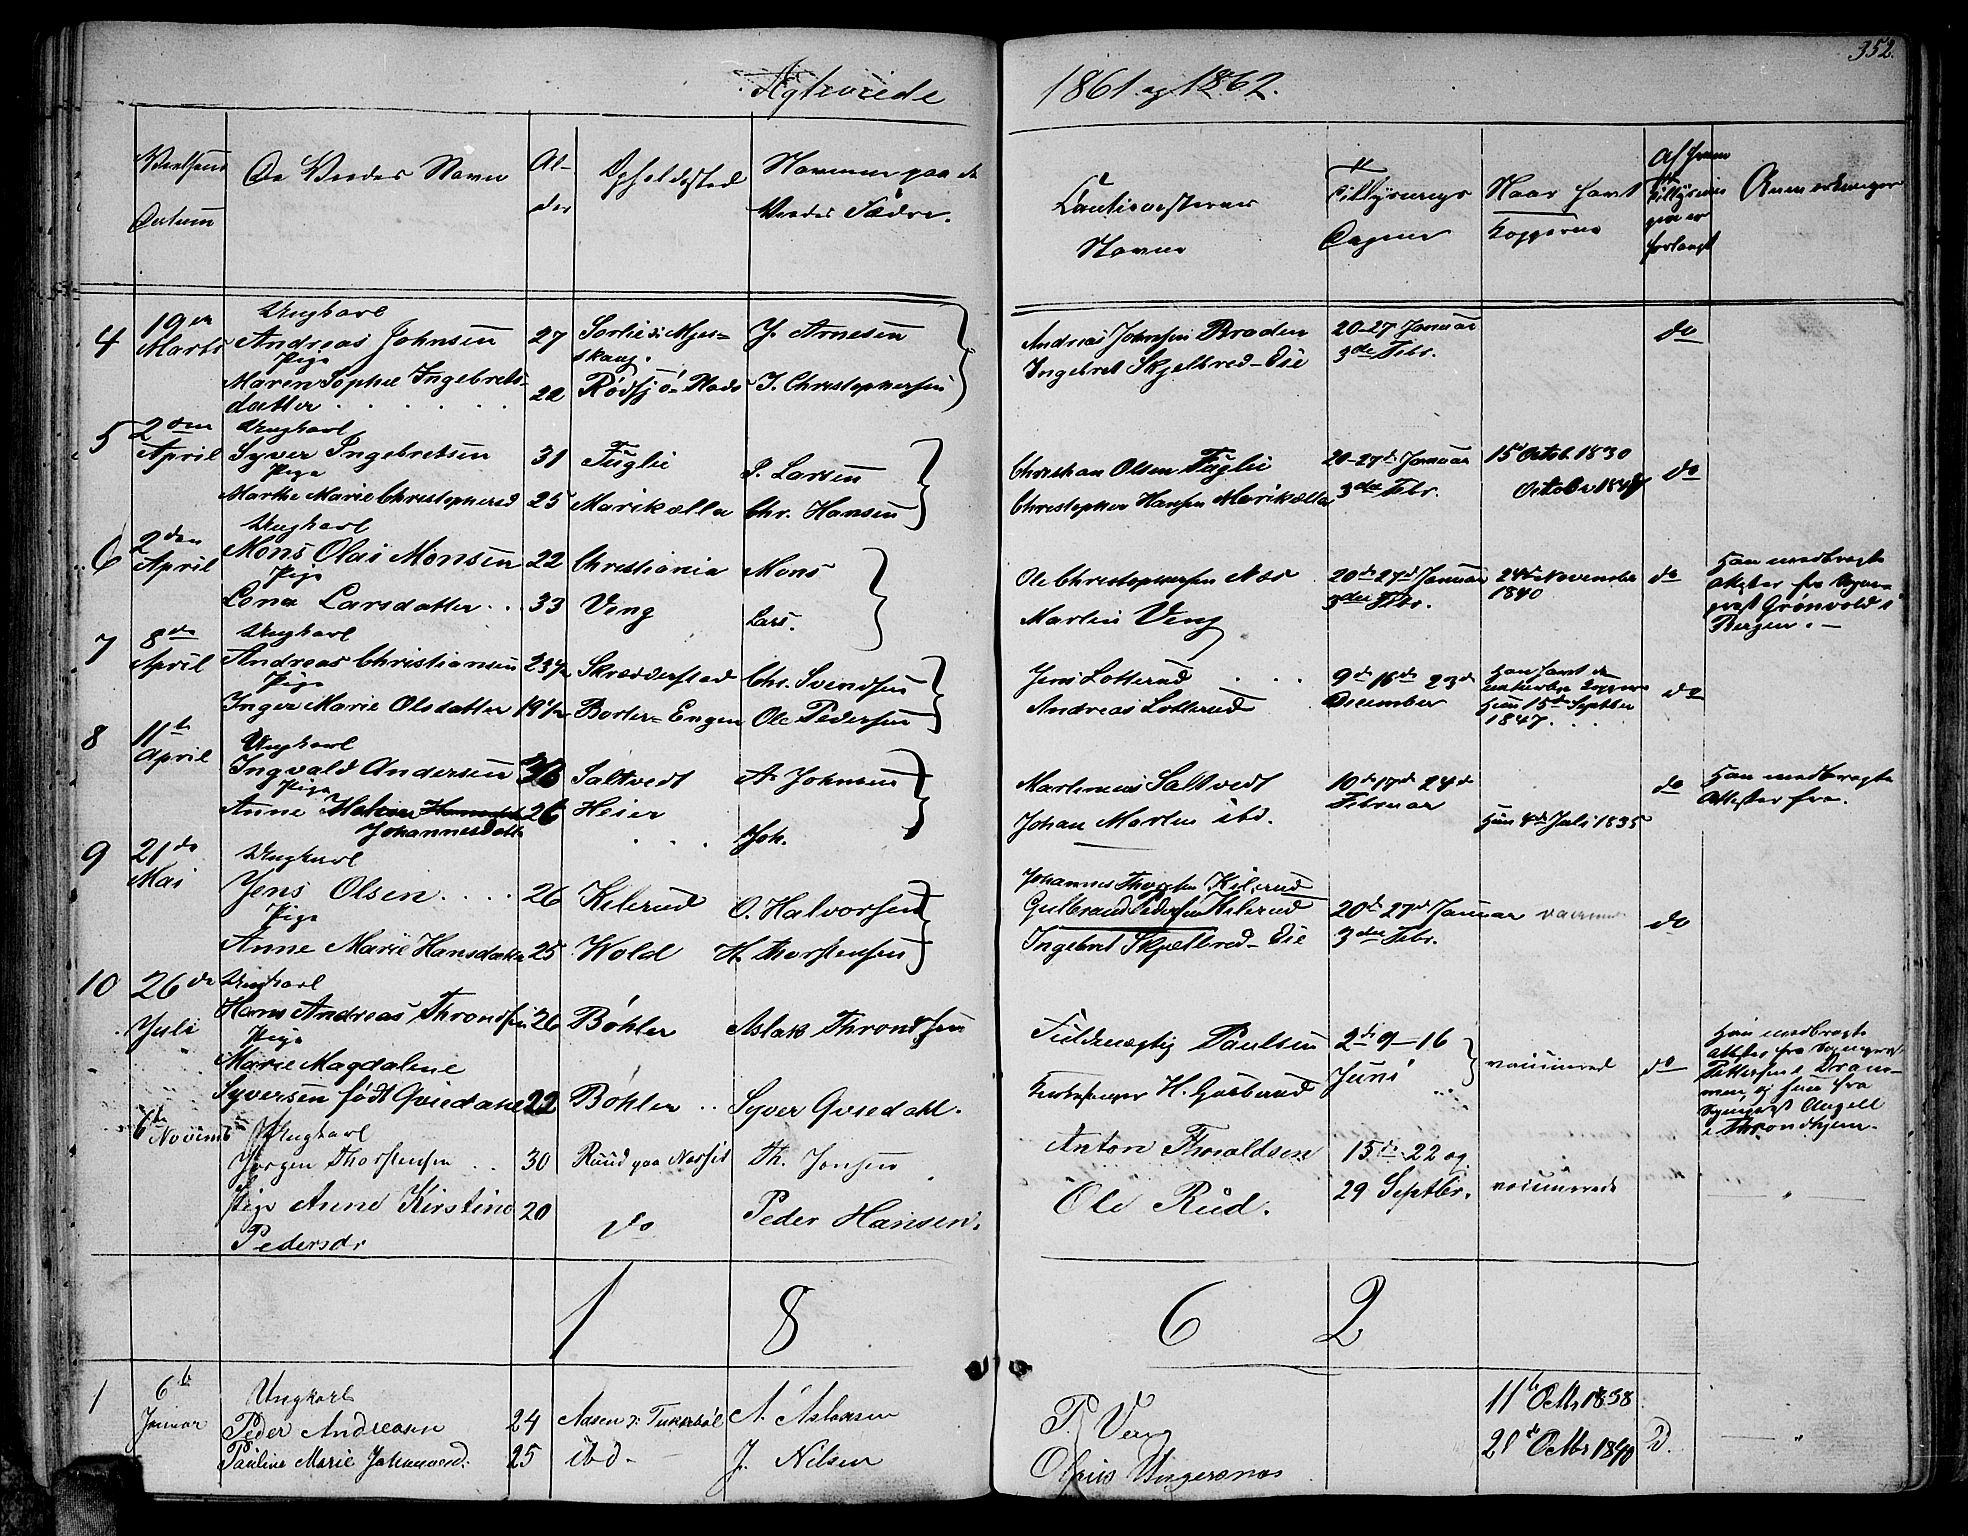 352.
Ægteviede 1861. og 1862.
Vielsens Datum
De Viedes Navn
Alder
Opholdssted
Navnene paa de Viedes Fædre.
Cautionisternes Navne
Tillysnings Dagene
Naar havt Kopperne
Af hvem Tillysningen er forlangt
Anmerkninger
4 19de Marts
Ungkarl
Andreas Johnsen 27 J. Arnesen
Pige
Maren Sophie Ingebrets-
datter . . . . . 22 Rødsjø-Plads I. Christophersen
Andreas Johnsen Braden 20-27 Januar do
Ingebret Skjelbred-Eie 3die Febr.
5 2den April
Ungkarl
Syver Ingebretsen 31 Fuglie I. Larsen
Pige
Marthe Marie Christophersd 25 Marikælla Chr. Hansen
Christian Olsen Fuglie 20-27de Januar 15de Octob. 1830 do
Christopher Hansen Marikælla 3die Febr. October
6 2den April
Ungkarl
Mons Olai Monsen 22 Christiania Mons
Pige
Lena Larsdatter . . 33 Veng Lars.
Ole Christophersen Næs 20de 27de Januar 24de November do
Martin Veng 3die Febr. 1840
Han medbragte
Attester fra Sogne-
præst Grønvold i
Bergen. —
7 8de April
Ungkarl
Andreas Christiansen 23½ Skrædderstad Chr. Svendsen
Pige
Inger Marie Olsdatter 19½ Borter-Engen Ole Pedersen
Jens Lotterud . . . 9de 16de 23de do
Andreas Lotterud December
Han havt de
naturlige Kopper
Hun 15de Septbr
1847.
8 11te April
Ungkarl
Ingvald Andersen Saltvedt A. Johnsen
Pige
Anne Helene 26 Heier
Johannesdatt . . . Joh.
Martinius Saltvedt 10de 17de 24de do
Johan Martin ibd. Februar Hun 4de Juli 1835
Han medbragte
Attester fra.
9 21de Mai
Ungkarl
Jens Olsen . . . . 26 Kilerud O. Halvorsen
Pige
Anne Marie Hansdatter 25 Wold H. Thorstensen
Johannes Thorsten Kilerud
Gulbrand Pedersen Kilerud 20de 27de Januar do
Ingebret Skjelbred-Eie 3die Febr.
10 26de Juli
Ungkarl
Hans Andreas Throndsen 26 Bøhler Aslak Throndsen
Pige
Marie Magdalene
Syversen født Qvisdahl 22 Bøhler . . Syver Qvisdahl.
Fuldmægtig Paulsen 2de 9-16
Kirkesanger H. Gusberud Juni vaccinerede do
Han medbragte
Attester fra Sognepræst
Pettersen i Dram-
men og hun fra
Sognepræst Angell
i Throndhjem.
6te Novemb
Ungkarl
Jørgen Thorstensen . . 30 Ruud paa Næsset Th. Jensen
Pige Anne Kirstine 20 do Peder Hansen.
Pedersdr
Anton Thoraldsen 15de 22 og
Ole Rud. 29 Septbr. vaccinerede
1 8 6 2
1 6te Januar
Ungkarl
Peder Andreasen 24 Aasen A. Aslaksen
Pauline Marie Johannesd. 25 ibd - J. Nilsen
P. Veng 11te Octbr 1838
21de Octbr 1840 D.